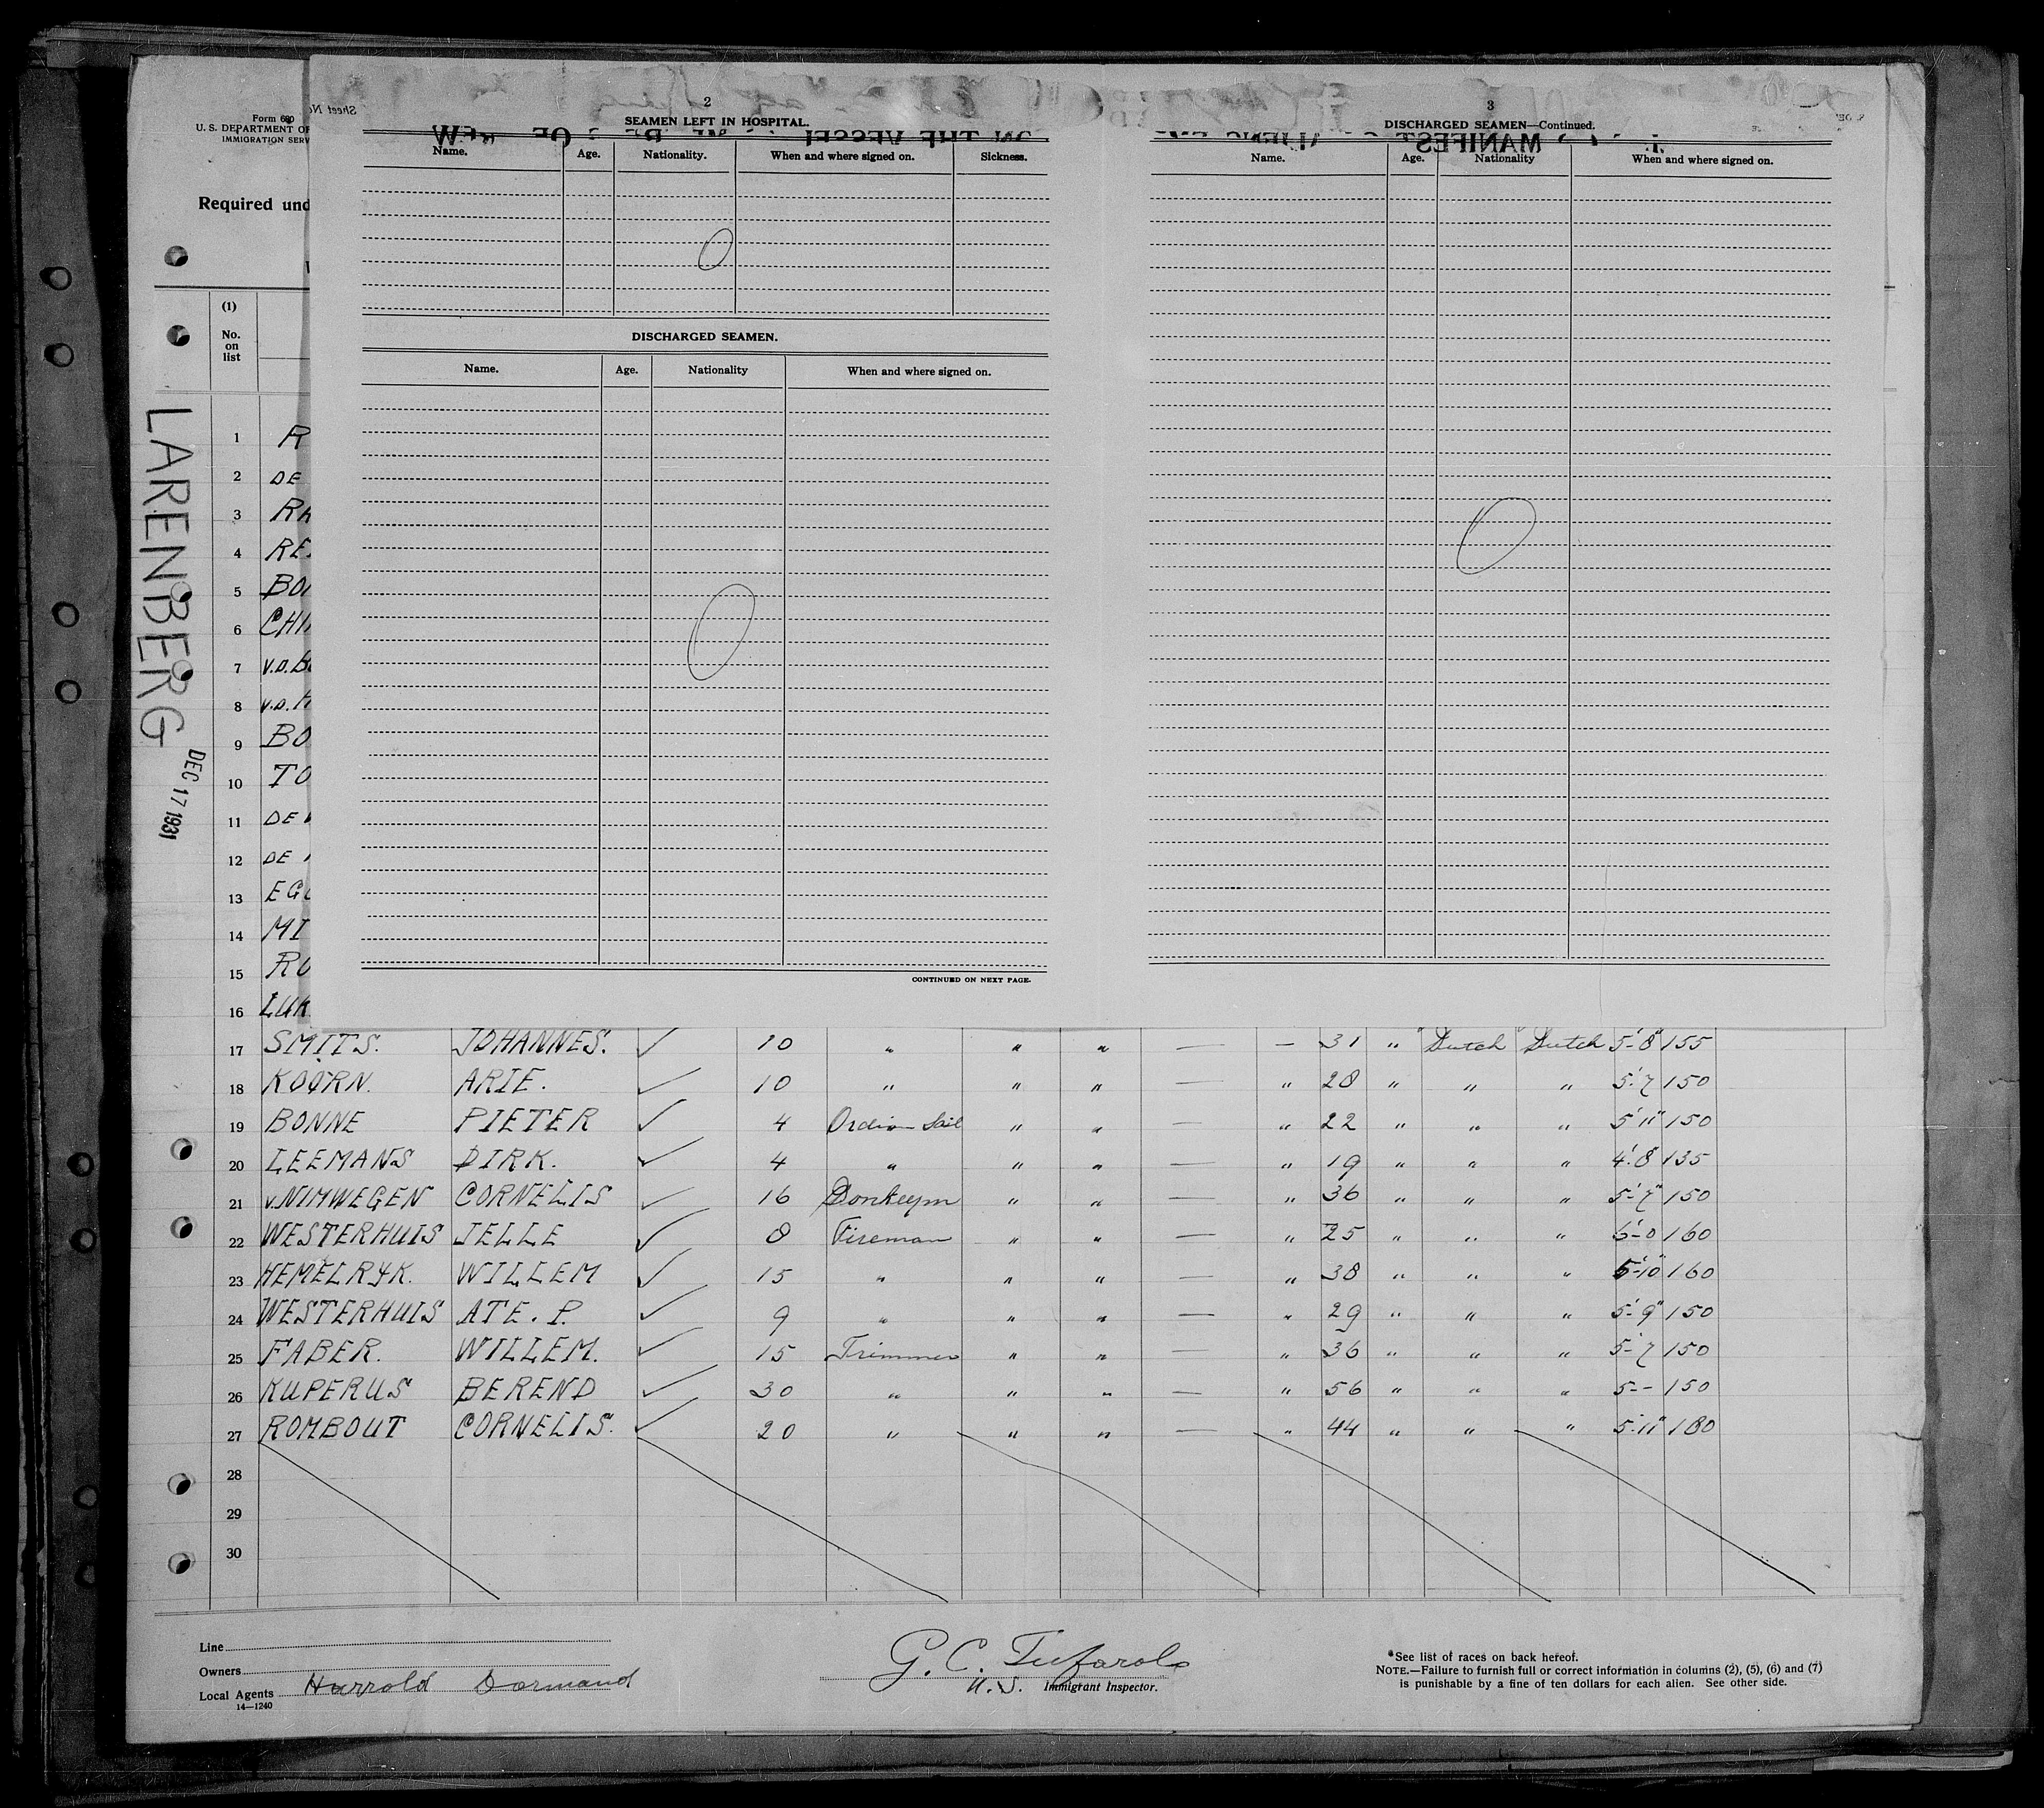 Form 680
U. S. DEPARTMENT OF
IMMIGRATION SERV
Required und
(1)
No.
on
list
LARENBERG
DEC 17 1931
2
SEAMEN LEFT IN HOSPITAL.
Name. Age. Nationality. When and where signed on. Sickness.
0
DISCHARGED SEAMEN.
Name. Age. Nationality When and where signed on.
0
CONTINUED ON NEXT PAGE.
3
DISCHARGED SEAMEN—Continued.
Name. Age. Nationality When and where signed on.
0
1 R
2 DE
3 RA
4 RE
5 BO
6 CHI
7 v.D.B
8 v.D.H
9 BO
10 TO
11 DE
12 DE
13 EG
14 MI
15 RU
16 LUK
17 SMITS. JOHANNES. ✓ 10 " " " — — 31 " Dutch Dutch 5'-8" 155
18 KOORN. ARIE. ✓ 10 " " " — " 28 " " " 5'-7 150
19 BONNE PIETER ✓ 4 Ordin Sail " " — " 22 " " " 5'11" 150
20 LEEMANS DIRK. ✓ 4 " " " — " 19 " " " 4'.8" 135
21 v.NIMWEGEN CORNELIS ✓ 16 Donkeym " " — " 36 " " " 5'-7" 150
22 WESTERHUIS JELLE ✓ 8 Fireman " " — " 25 " " " 6'-0 160
23 HEMELRYK. WILLEM ✓ 15 " " " — " 38 " " " 5'-10" 160
24 WESTERHUIS ATE. P. ✓ 9 " " " — " 29 " " " 5'-9" 150
25 FABER. WILLEM. ✓ 15 Trimmer " " — " 36 " " " 5'-7 150
26 KUPERUS BEREND ✓ 30 " " " — " 56 " " " 5-- 150
27 ROMBOUT CORNELIS. ✓ 20 " " " — " 44 " " " 5'-11" 180
28
29
30
Line
Owners
Local Agents Harrold Dormand
14—1240
G. C. Tufarolo
U.S. Immigrant Inspector.
*See list of races on back hereof.
NOTE.—Failure to furnish full or correct information in columns (2), (5), (6) and (7)
is punishable by a fine of ten dollars for each alien. See other side.